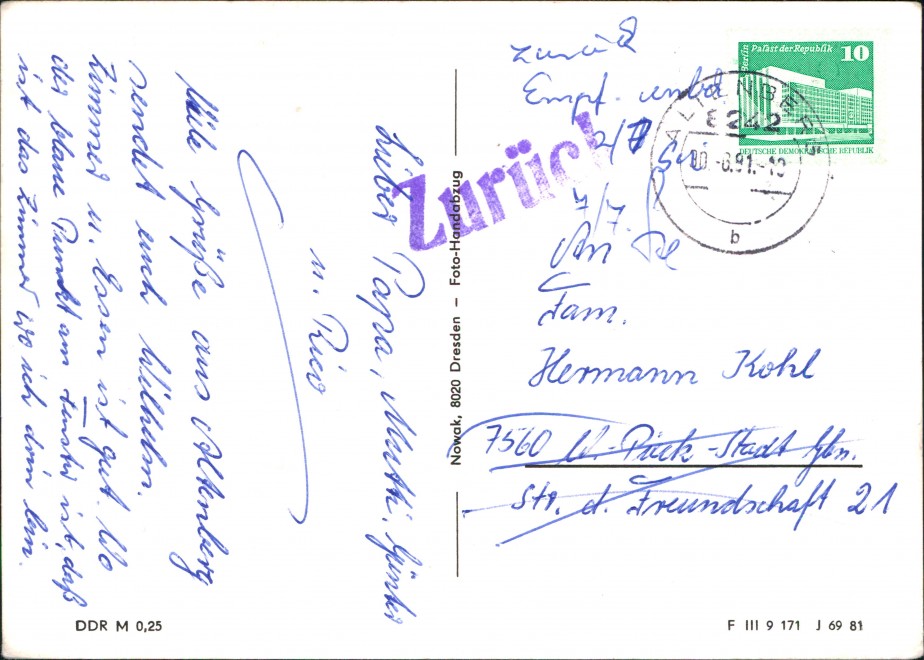 Lieber Papa, Mutti, Günter
u. Rico
Viele Grüße aus Altenberg
sendet euch Wilhelm.
Zimmer u. Essen ist gut. Wo
der blaue Punkt am Fenster ist, daß
ist das Zimmer wo ich drin bin.
DDR M 0,25
Nowak, 8020 Dresden – Foto-Handabzug
Zurück
zurück
Empf. unbek
7/7
Berlin Palast der Republik 10
DEUTSCHE DEMOKRATISCHE REPUBLIK
ALTENBERG
8242
.81.-
b
An
Fam.
Hermann Kohl
7560 W.-Pieck-Stadt Gbn.
Str. d. Freundschaft 21
F III 9 171 J 69 81